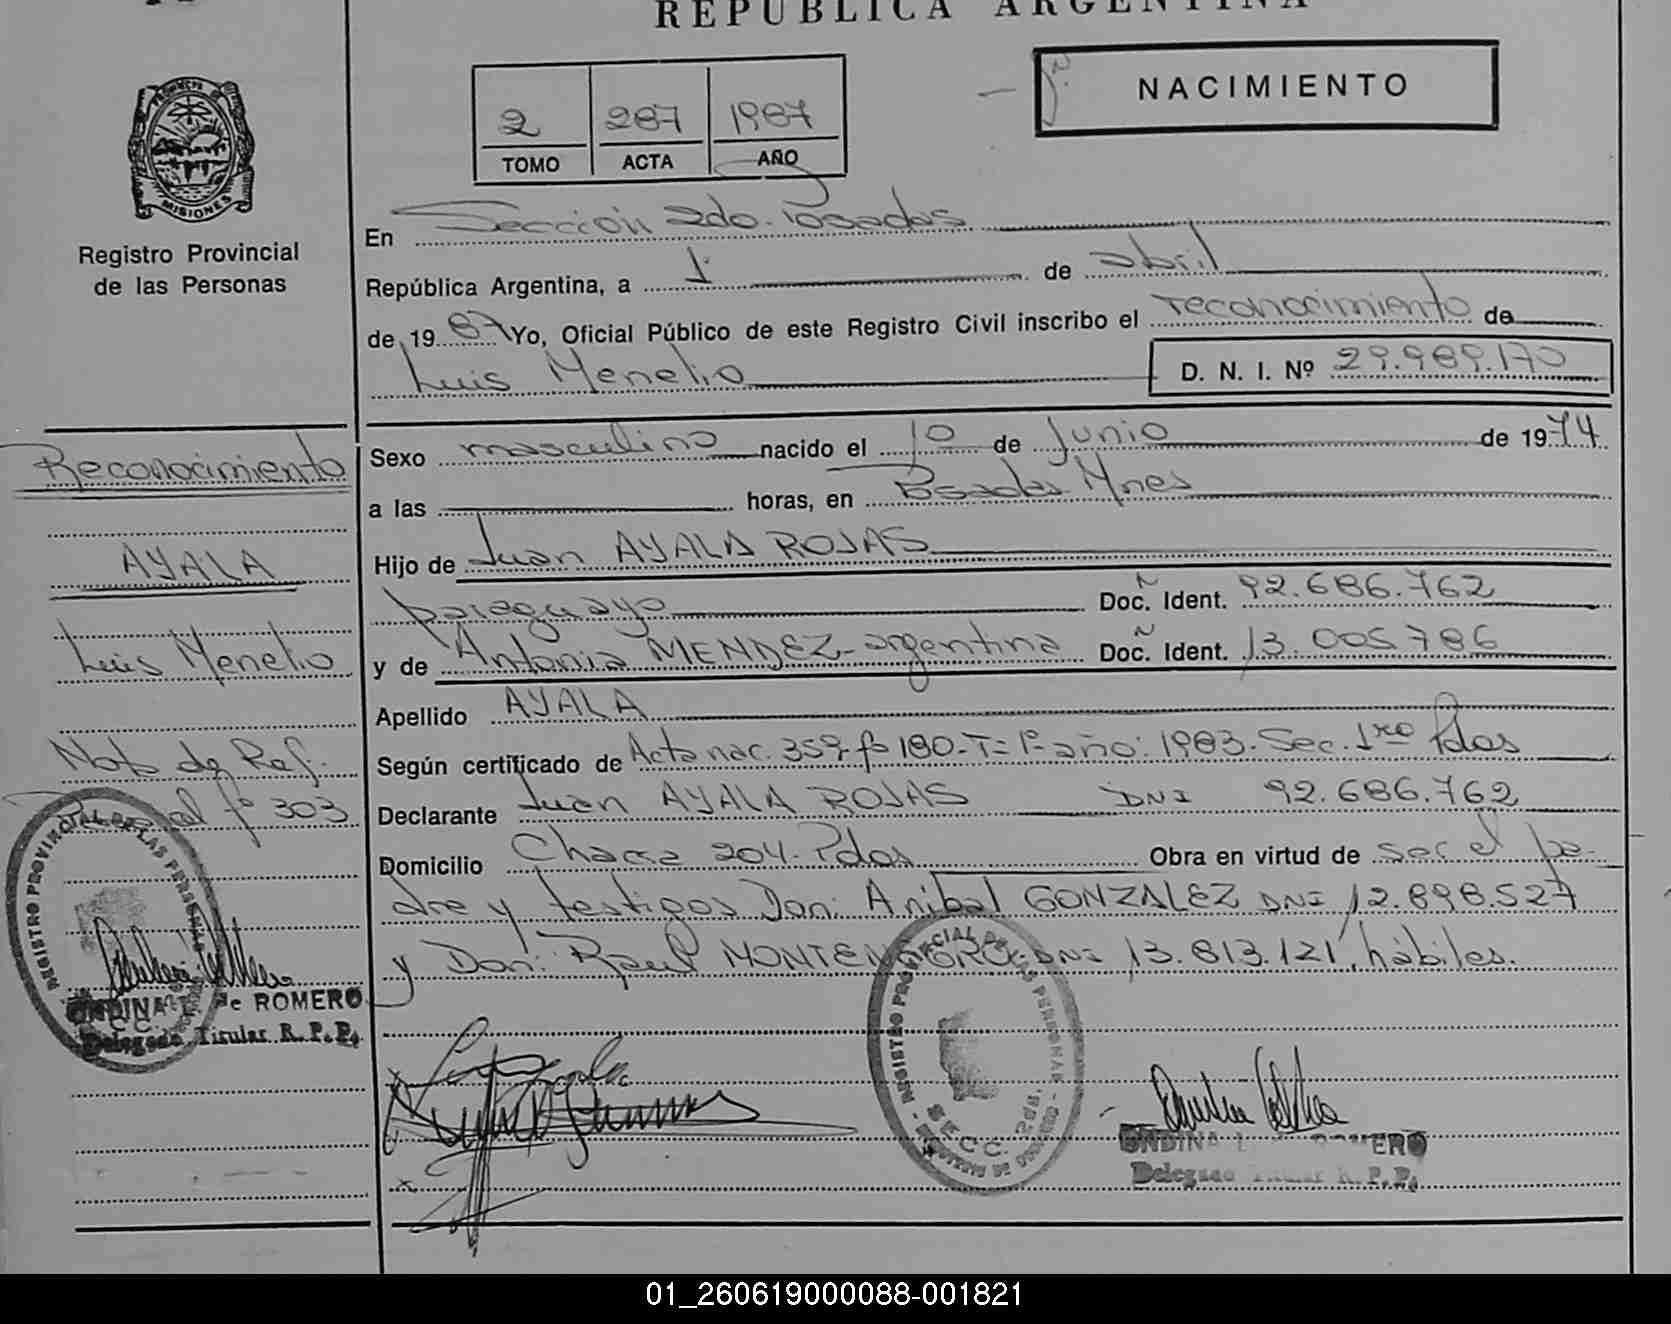 REPUBLICA ARGENTINA
NACIMIENTO
2 287 1987
TOMO ACTA AÑO
PROVINCIA DE
MISIONES
Registro Provincial
de las Personas
En Sección 2do. Posadas
República Argentina, a 1º de abril
de 19 87 Yo, Oficial Público de este Registro Civil inscribo el reconocimiento de
Luis Menelio D. N. I. Nº 29.989.170
Reconocimiento
AYALA
Luis Menelio
Nota de Ref.
fº 303
ONDINA de ROMERO
Delegado Titular R.P.P.
Sexo masculino nacido el 10 de Junio de 1974
a las horas, en Posadas Mnes
Hijo de Juan AYALA ROJAS
paraguayo Doc. Ident. 92.686.762
y de Antonia MENDEZ-argentina Doc. Ident. 13.005786
Apellido AYALA
Según certificado de Acta nac. 359-fº 180-T=1º-año: 1983. Sec. 1ro Pdas
Declarante Juan AYALA ROJAS DNI 92.686.762
Domicilio Chacra 204. Pdas Obra en virtud de ser el pa-
dre y testigos Don: Anibal GONZALEZ DNI 12.898.527
y Don: Raul MONTENEGRO-DNI 13.813.121, hábiles.
REGISTRO PROVINCIAL DE LAS PERSONAS
SECC. 2da.
ONDINA ROMERO
Delegado Titular R.P.P.
01_260619000088-001821